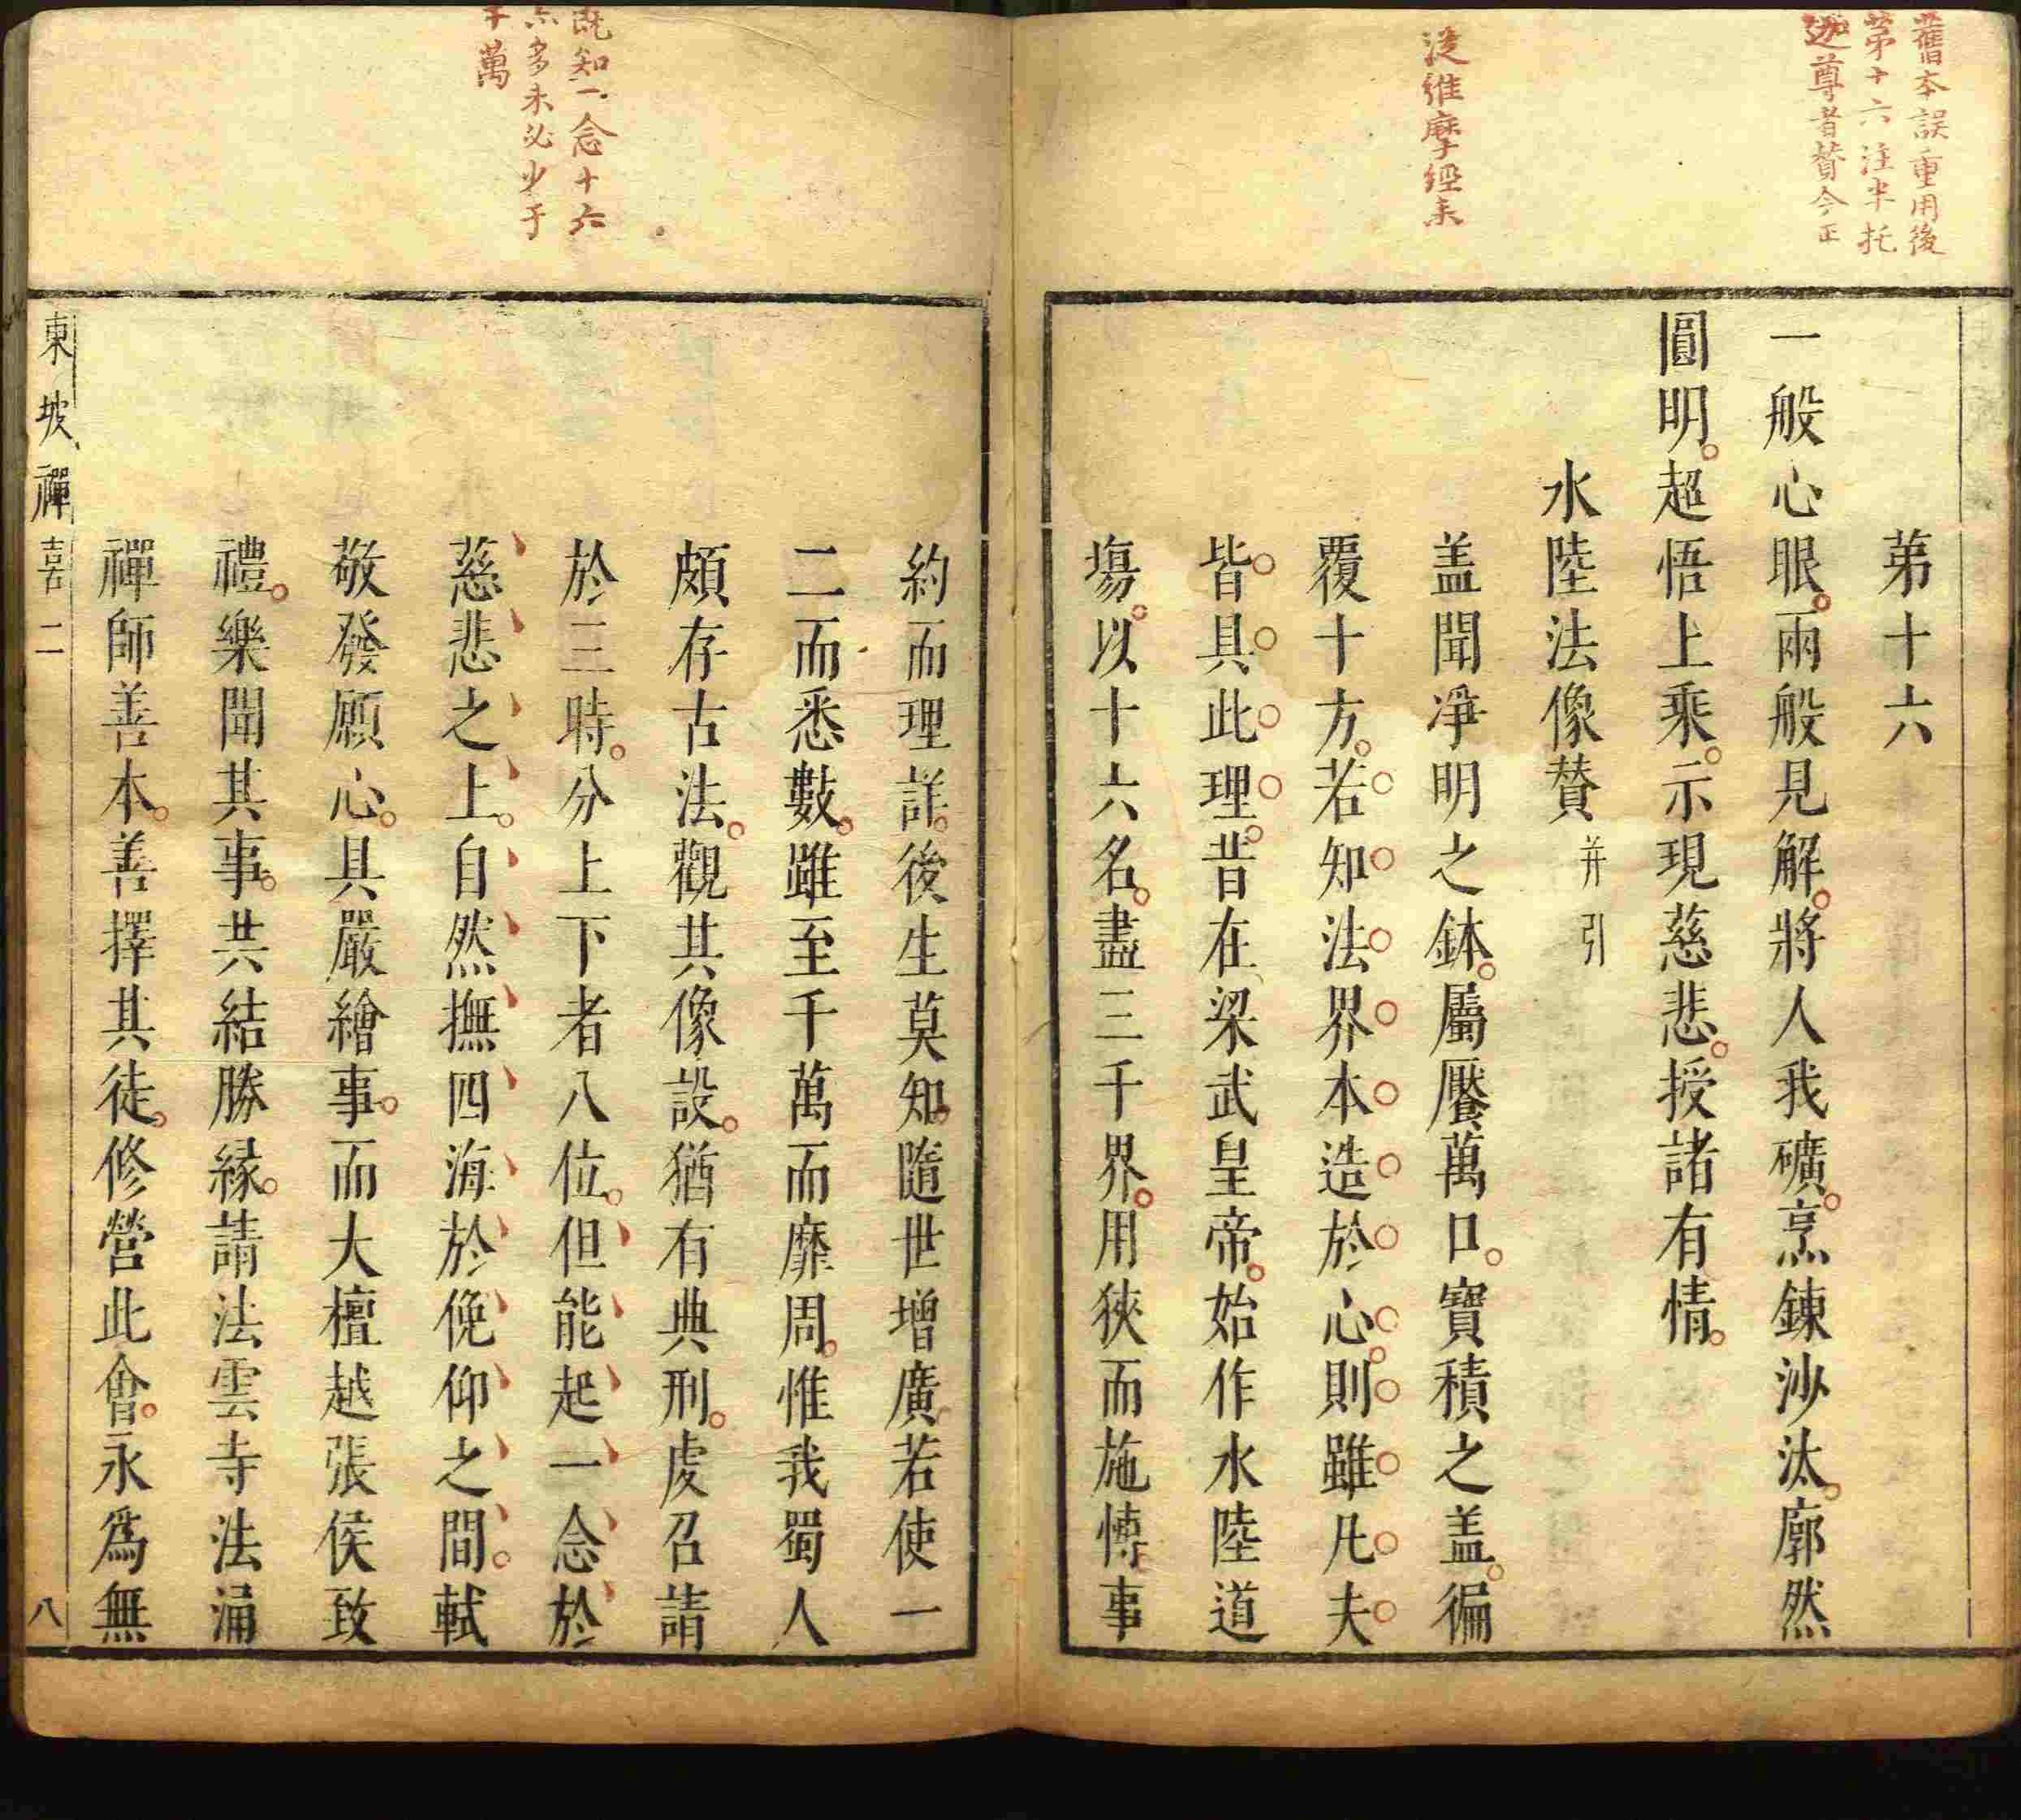 舊本誤重用後
第十六注半托
迦尊者贊今正
從維摩經來
第十六
一般心眼兩般見解將人我礦烹鍊沙汰廓然
圓明超悟上乘示現慈悲授諸有情
水陸法像贊并引
盖聞淨明之鉢屬饜萬口寶積之盖徧
覆十方若知法界本造於心則雖凡夫
皆具此理昔在梁武皇帝始作水陸道
塲以十六名盡三千界用狹而施愽事
既知一念十六
亦多未必少于
千萬
約而理詳後生莫知隨世增廣若使一
二而悉數雖至千萬而靡周惟我蜀人
頗存古法觀其像設猶有典刑虔召請
於三時分上下者八位但能起一念於
慈悲之上自然撫四海於俛仰之間軾
敬發願心具嚴繪事而大檀越張侯致
禮樂聞其事共結勝緣請法雲寺法涌
禪師善本善擇其徒修營此會永為無
東坡禪喜二 八